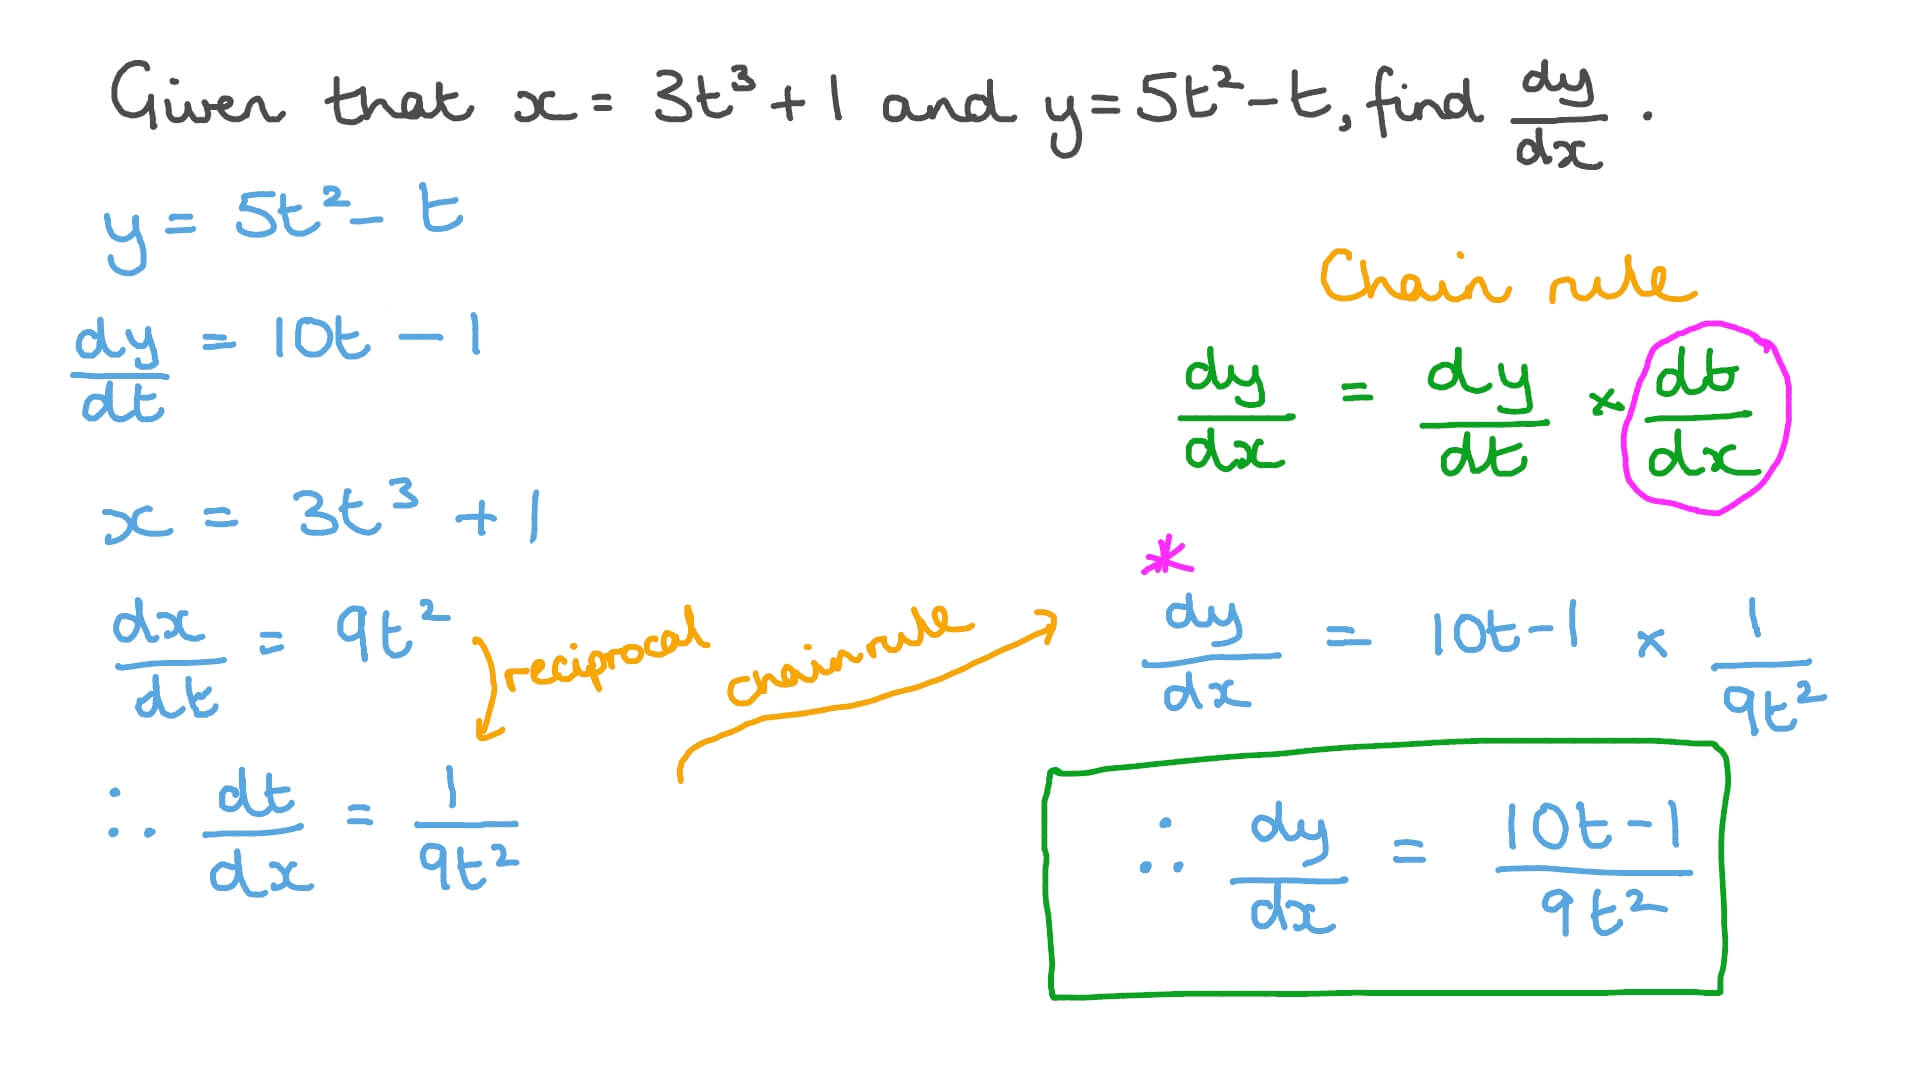 Given that x = 3t³ + 1 and y = 5t² - t, find dy/dx.
y = 5t² - t
dy/dt = 10t - 1
x = 3t³ + 1
dx/dt = 9t²
reciprocal
∴ dt/dx = 1/9t²
chain rule
Chain rule
dy/dx = dy/dt × dt/dx
*
dy/dx = 10t - 1 × 1/9t²
∴ dy/dx = 10t - 1/9t²